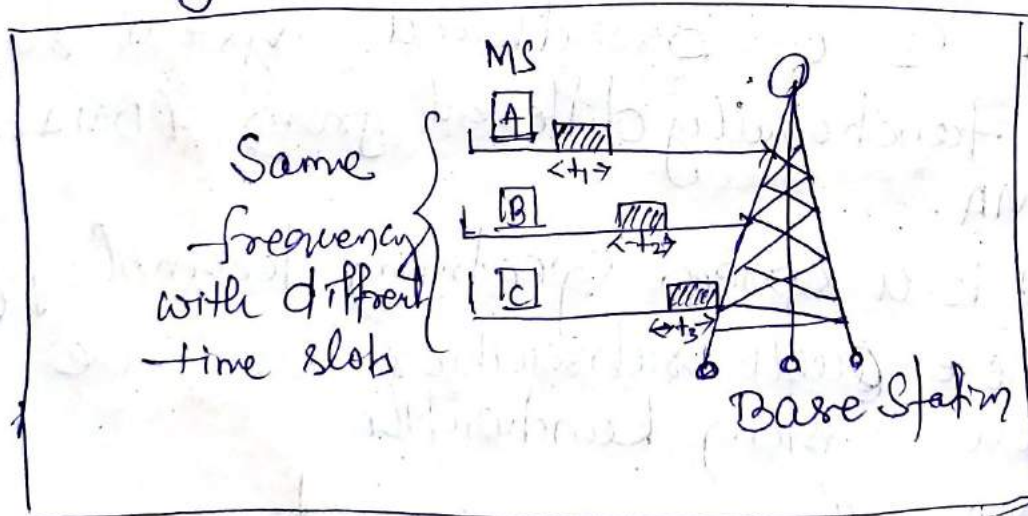 MS
Same
frequency
with diffrent
time slob
A
<t1>
B
<t2>
C
<t3>
Base Station